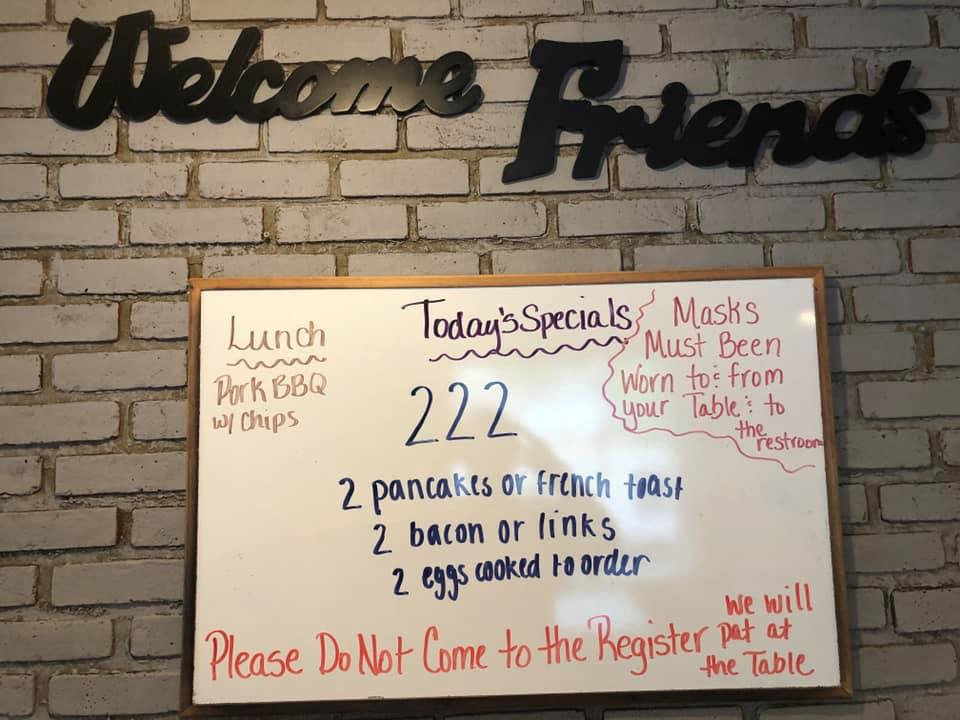 Welcome Friends
Today's Specials
Lunch
Pork BBQ
w/ Chips
Masks
Must Been
Worn to & from
your Table & to
the
restroom
222
2 pancakes or french toast
2 bacon or links
2 eggs cooked to order
Please Do Not Come to the Register
we will
pat at
the Table